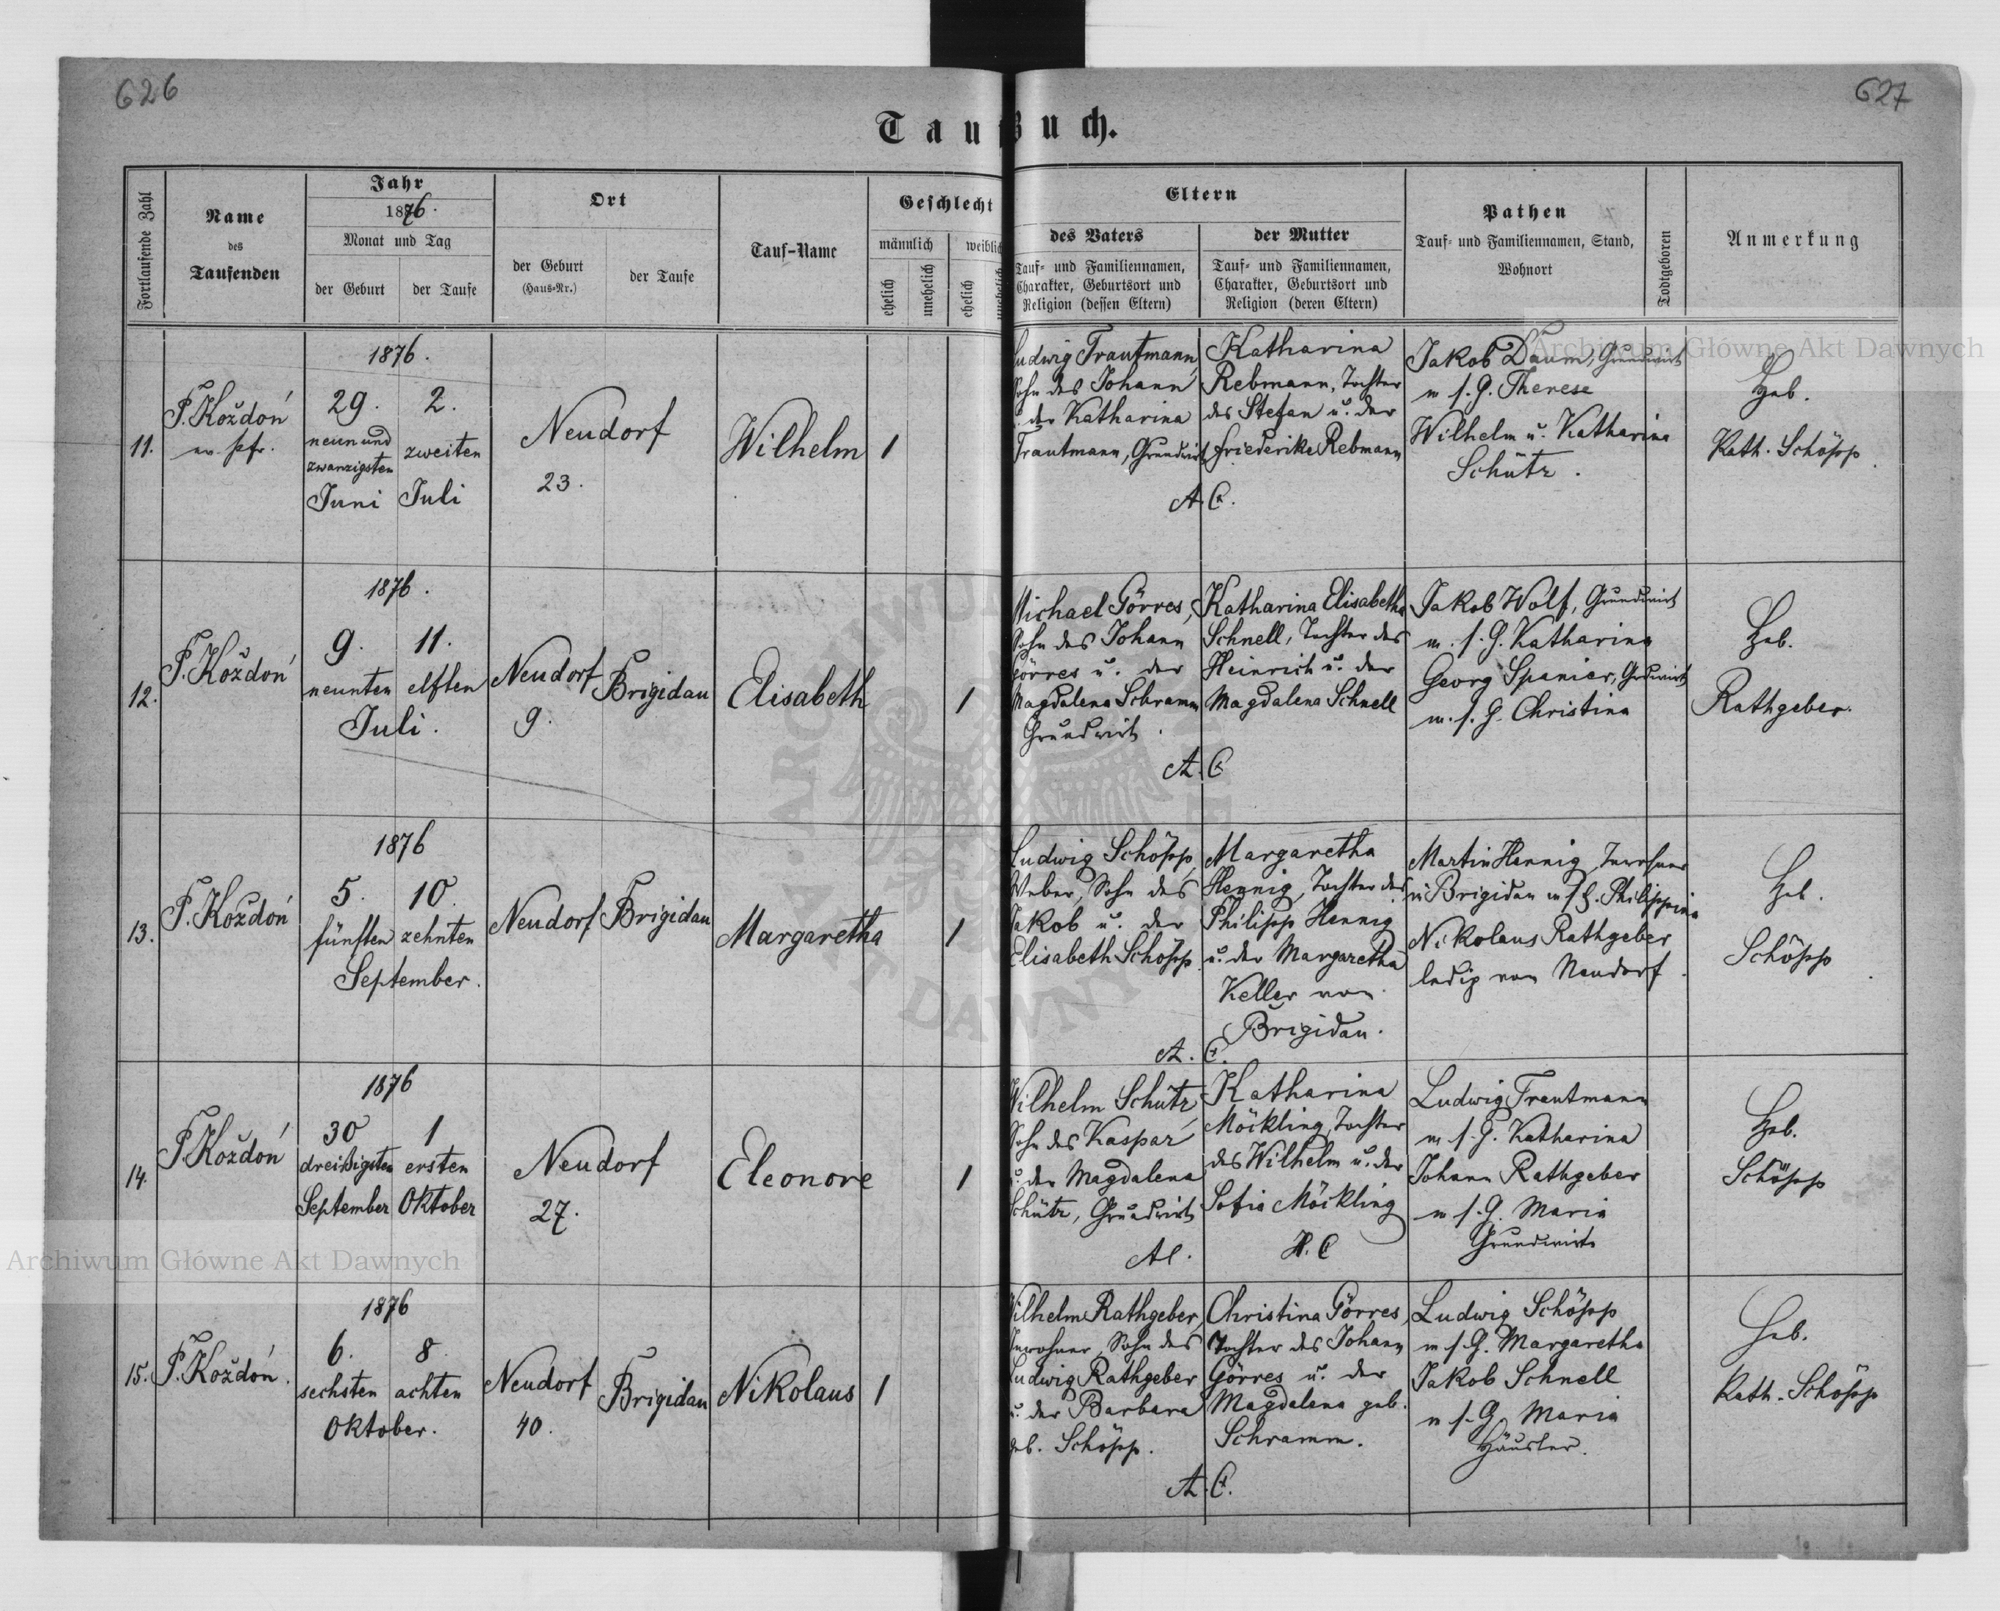 626
627
Taufbuch.
Fortlaufende Zahl
Name
des
Taufenden
Jahr
1876.
Monat und Tag
der Geburt
der Taufe
Ort
der Geburt
(Haus-Nr.)
der Taufe
Tauf-Name
Geschlecht
männlich
weiblich
ehelich
unehelich
ehelich
unehelich
Eltern
des Vaters
Tauf- und Familiennamen,
Charakter, Geburtsort und
Religion (dessen Eltern)
der Mutter
Tauf- und Familiennamen,
Charakter, Geburtsort und
Religion (deren Eltern)
Pathen
Tauf- und Familiennamen, Stand,
Wohnort
Todtgeboren
Anmerkung
11.
P. Koždoń
ev. Pfr.
1876.
29. 2.
neunund
zwanzigsten zweiten
Juni Juli
Neudorf
23.
Wilhelm
1
Ludwig Trautmann,
Sohn des Johann
u. der Katharina
Trautmann, Grundwirt
Katharina
Rebmann, Tochter
des Stefan u. der
Friederike Rebmann
A. C.
Jakob Daum, Grundwirt
m s. G. Therese
Wilhelm u. Katharina
Schütz.
Heb.
Kath. Schöpp
12.
P. Koždoń
1876.
9. 11.
neunten elften
Juli.
Neudorf
9.
Brigidau
Elisabeth
1
Michael Görres,
Sohn des Johann
Görres u. der
Magdalena Schramm
Grundwirt.
Katharina Elisabetha
Schnell, Tochter des
Heinrich u. der
Magdalena Schnell
A. C
Jakob Wolf, Grundwirt
m. s. G. Katharina
Georg Spanier, Grdwirt
m. s. G. Christina
Heb.
Rathgeber.
13.
P. Koždoń
1876
5. 10.
fünften zehnten
September.
Neudorf
Brigidau
Margaretha
1
Ludwig Schöpp,
Weber, Sohn des
Jakob u. der
Elisabeth Schöpp
Margaretha
Hennig, Tochter des
Philipp Hennig
u. der Margaretha
Keller von
Brigidau.
A. C.
Martin Hennig, Inwohner
in Brigidau m s G. Philippina
Nikolaus Rathgeber
ledig von Neudorf
Heb.
Schöpp
14.
P. Koždoń
1876
30 1
dreißigsten ersten
September Oktober
Neudorf
27.
Eleonore
1
Wilhelm Schütz
Sohn des Kaspar
u. der Magdalena
Schütz, Grundwirt
A C.
Katharina
Möckling, Tochter
des Wilhelm u. der
Sofia Möckling
H. C
Ludwig Trautmann
m s. G. Katharina
Johann Rathgeber
m s. G. Maria
Grundwirte
Heb.
Schöpp
15.
P. Koždoń.
1876
6. 8.
sechsten achten
Oktober.
Neudorf
40.
Brigidau
Nikolaus
1
Wilhelm Rathgeber,
Inwohner, Sohn des
Ludwig Rathgeber
u. der Barbara
geb. Schöpp.
Christina Görres,
Tochter des Johann
Görres u. der
Magdalena geb.
Schramm.
A. C.
Ludwig Schöpp
m s. G. Margaretha
Jakob Schnell
m s. G. Maria
Häusler.
Heb.
Kath. Schöpp
Archiwum Główne Akt Dawnych
Archiwum Główne Akt Dawnych